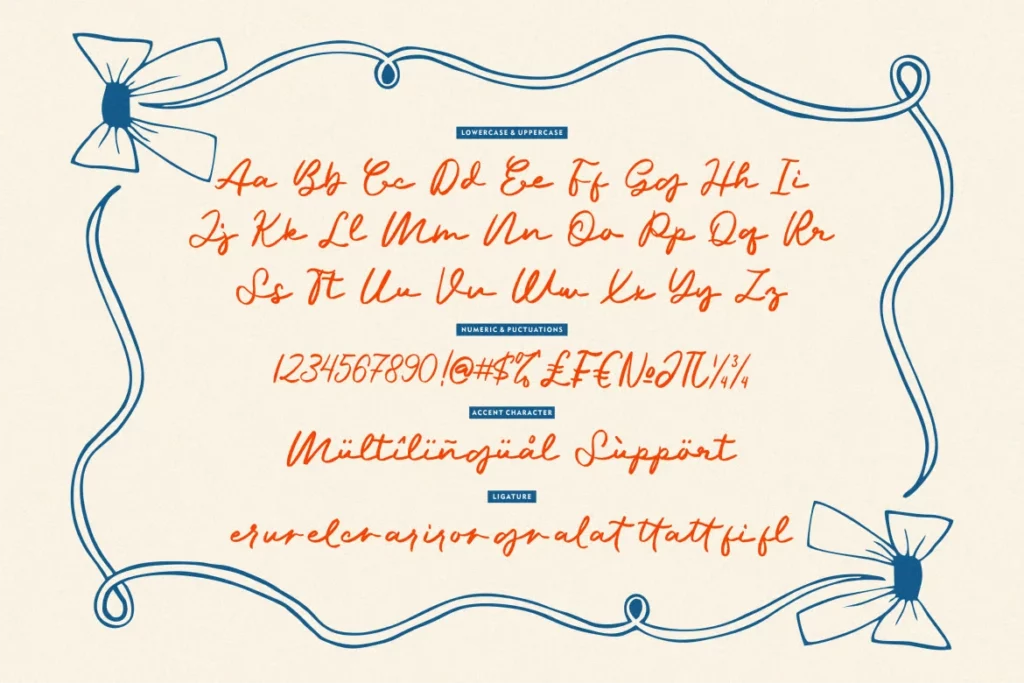 LOWERCASE & UPPERCASE
Aa Bb Cc Dd Ee Ff Gg Hh Ii
Jj Kk Ll Mm Nn Oo Pp Qq Rr
Ss Tt Uu Vv Ww Xx Yy Zz
NUMERIC & PUCTUATIONS
1234567890!@#$%£₣€№∂∏¼¾
ACCENT CHARACTER
Mültîlïñgüål Sùppört
LIGATURE